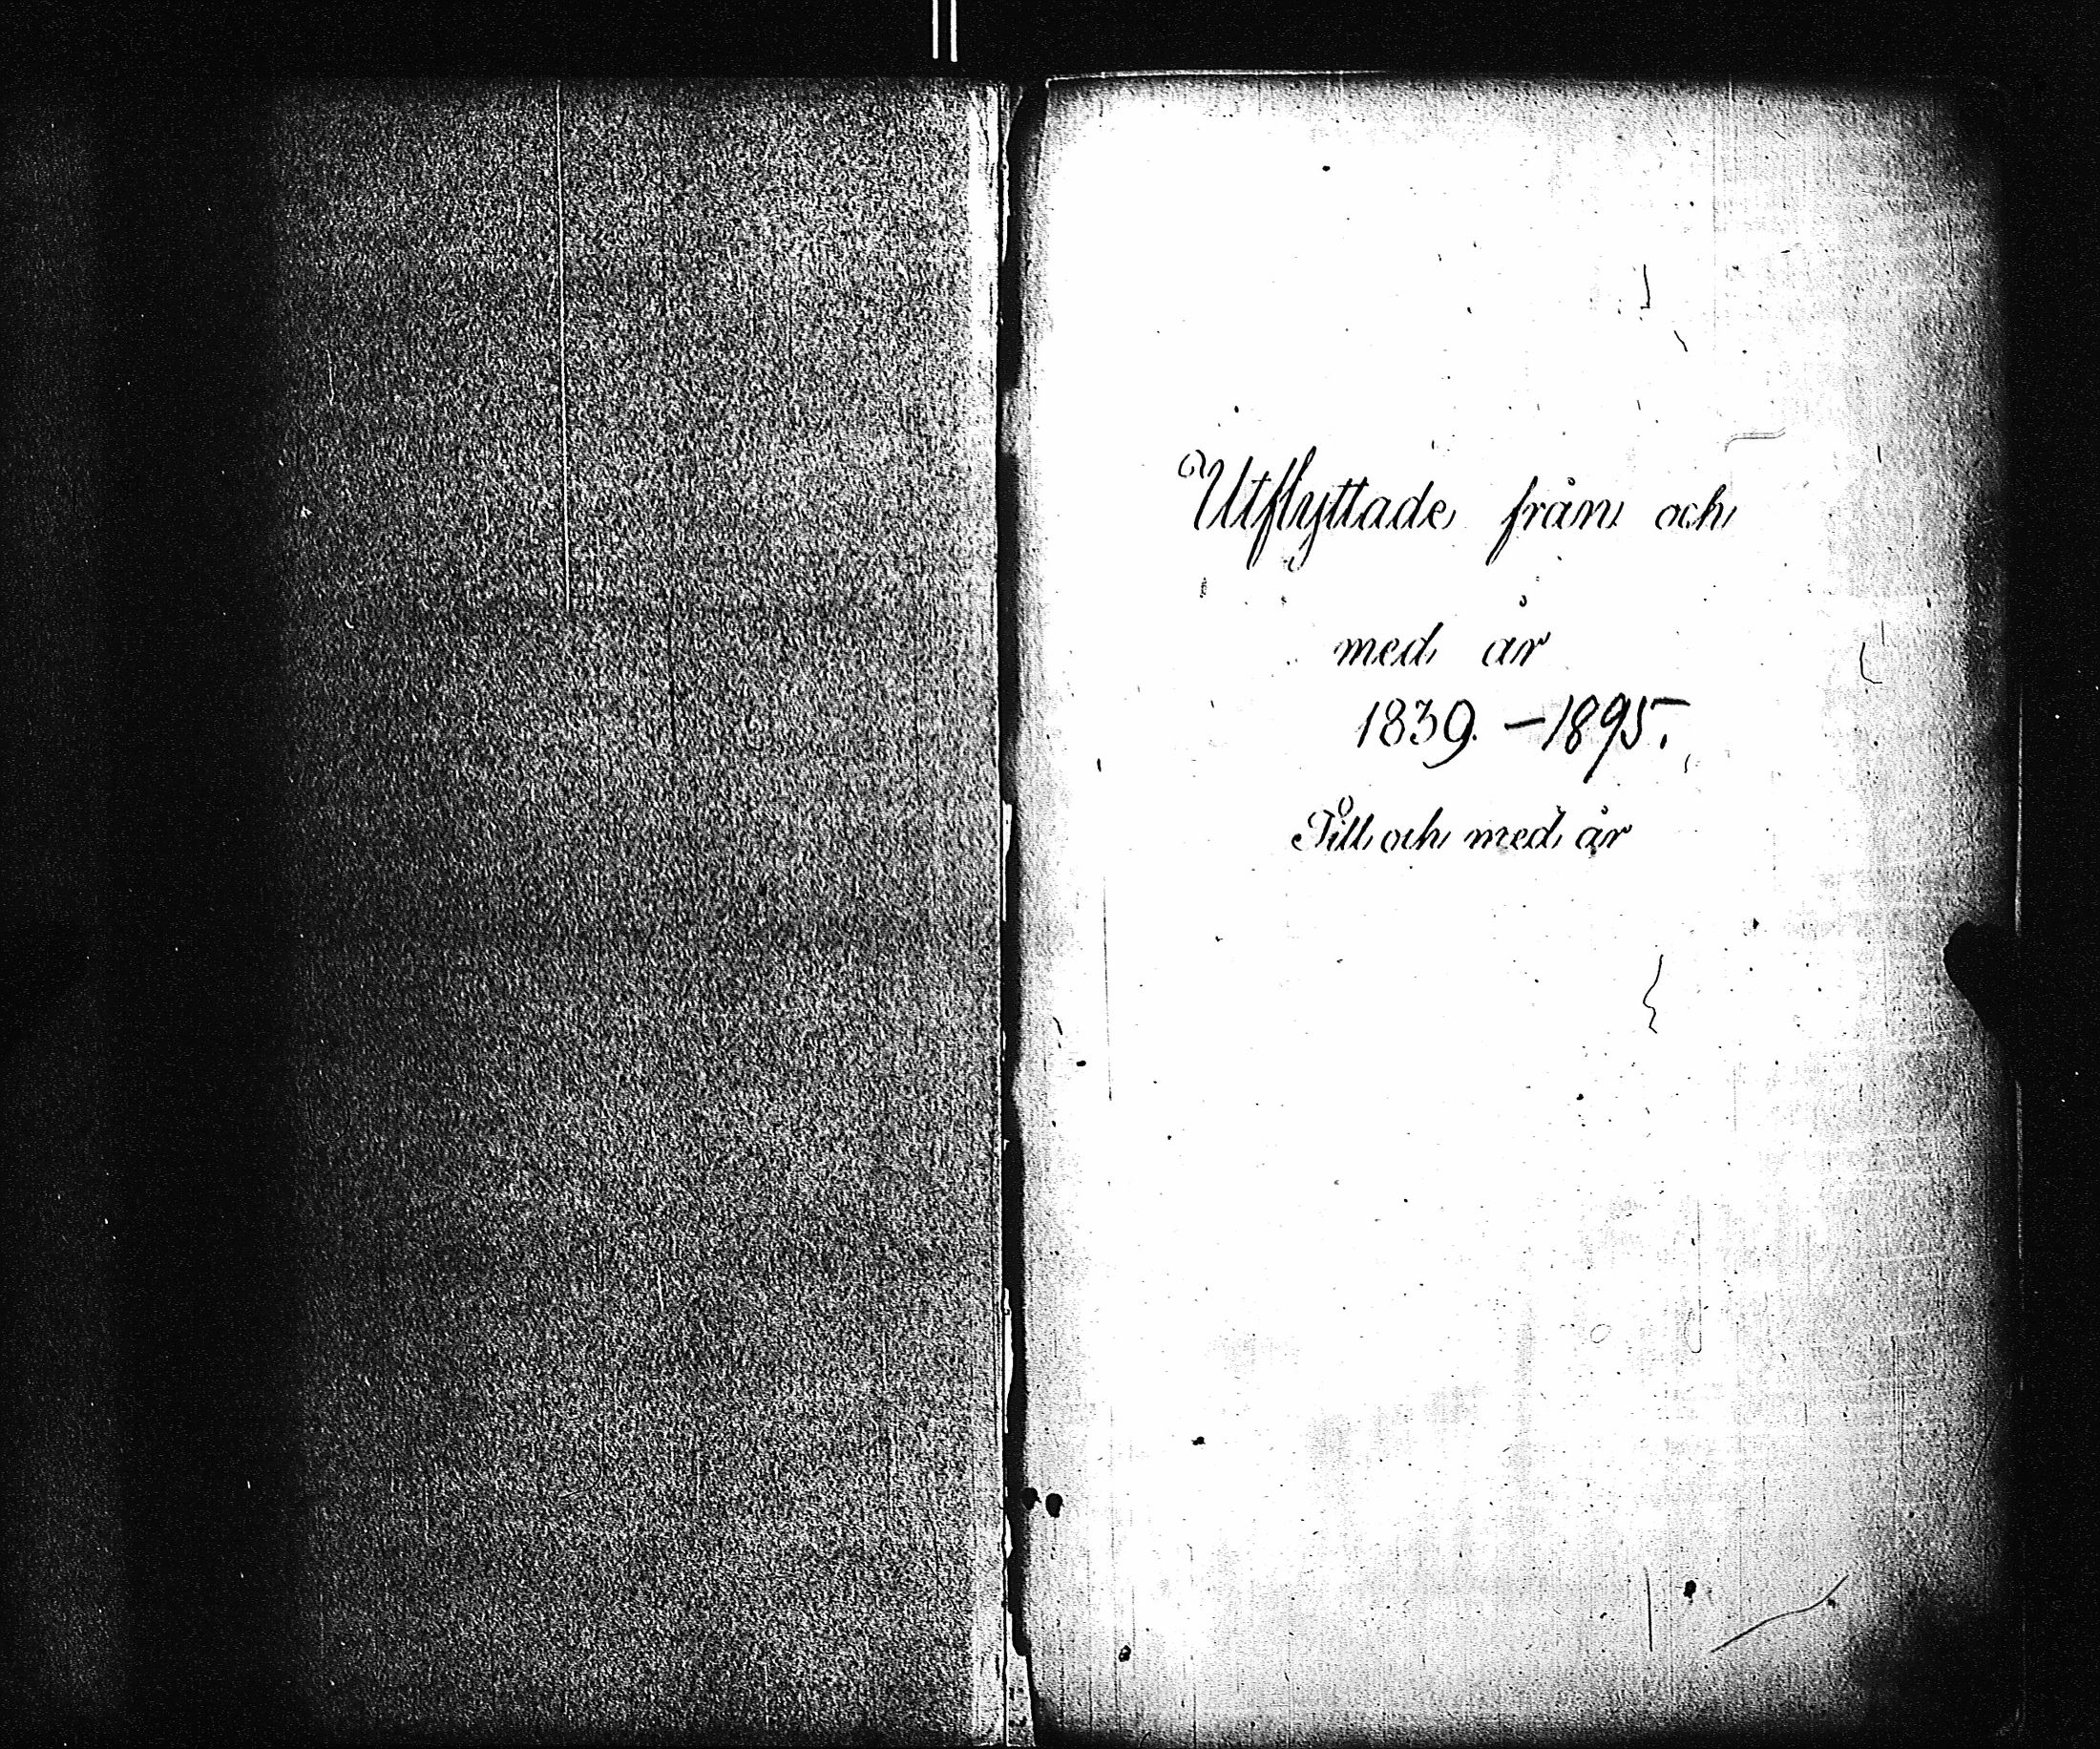 Utflyttade från och
med år
1839. – 1895.
Till och med år